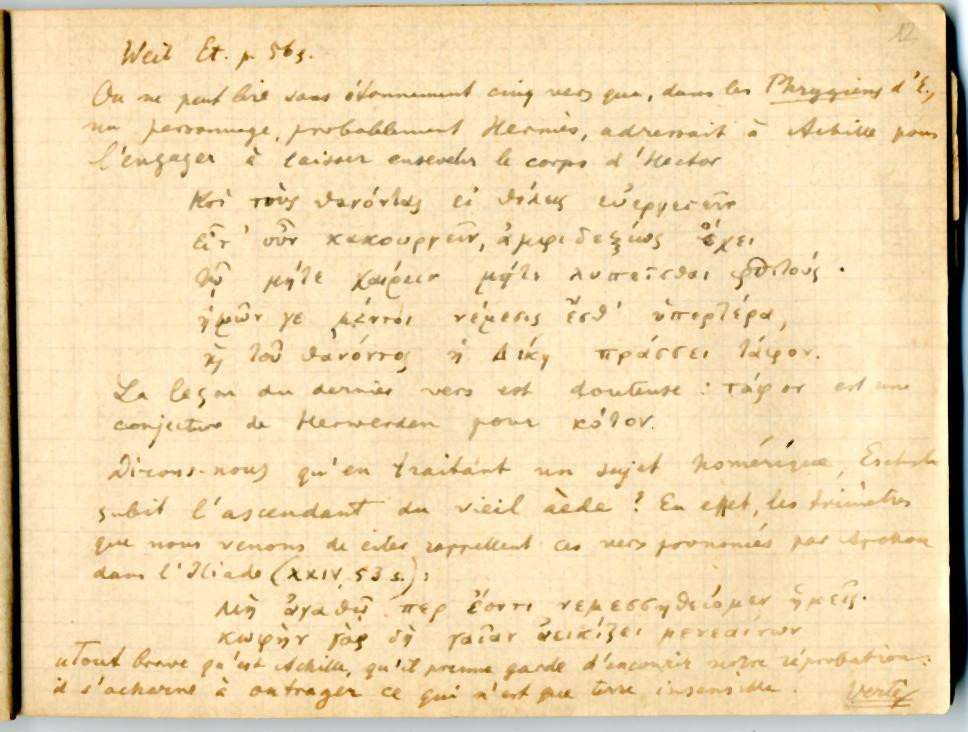 12
Weil Et. p 56 s.
On ne peut lire sans étonnement cinq vers que, dans les Phrygiens d'E.,
un personnage, probablement Hermès, adressait à Achille pour
l'engager à laisser ensevelir le corps d'Hector
Καὶ τοὺς θανόντας εἰ θέλεις εὐεργετεῖν
εἴτ' οὖν κακουργεῖν, ἀμφιδεξίως ἔχει
τῷ μήτε χαίρειν μήτε λυπεῖσθαι φθιτούς.
ἡμῶν γε μέντοι νέμεσις ἔσθ' ὑπερτέρα,
κ τοῦ θανόντος ἡ Δίκη πράσσει τάφον.
La leçon du dernier vers est douteuse : τάφον est une
conjecture de Herwerden pour κότον.
Dirons-nous qu'en traitant un sujet homérique, Eschyle
subit l'ascendant du vieil aède ? En effet, les trimètres
que nous venons de citer rappellent ces vers prononcés par Apollon
dans l'Iliade (XXIV, 53 s.) :
Μὴ ἀγαθῷ περ ἐόντι νεμεσσηθείομεν ἡμεῖς.
κωφὴν γὰρ δὴ γαῖαν ἀεικίζει μενεαίνων
"Tout brave qu'est Achille, qu'il prenne garde d'encourir notre réprobation :
il s'acharne à outrager ce qui n'est que terre insensible. Verte